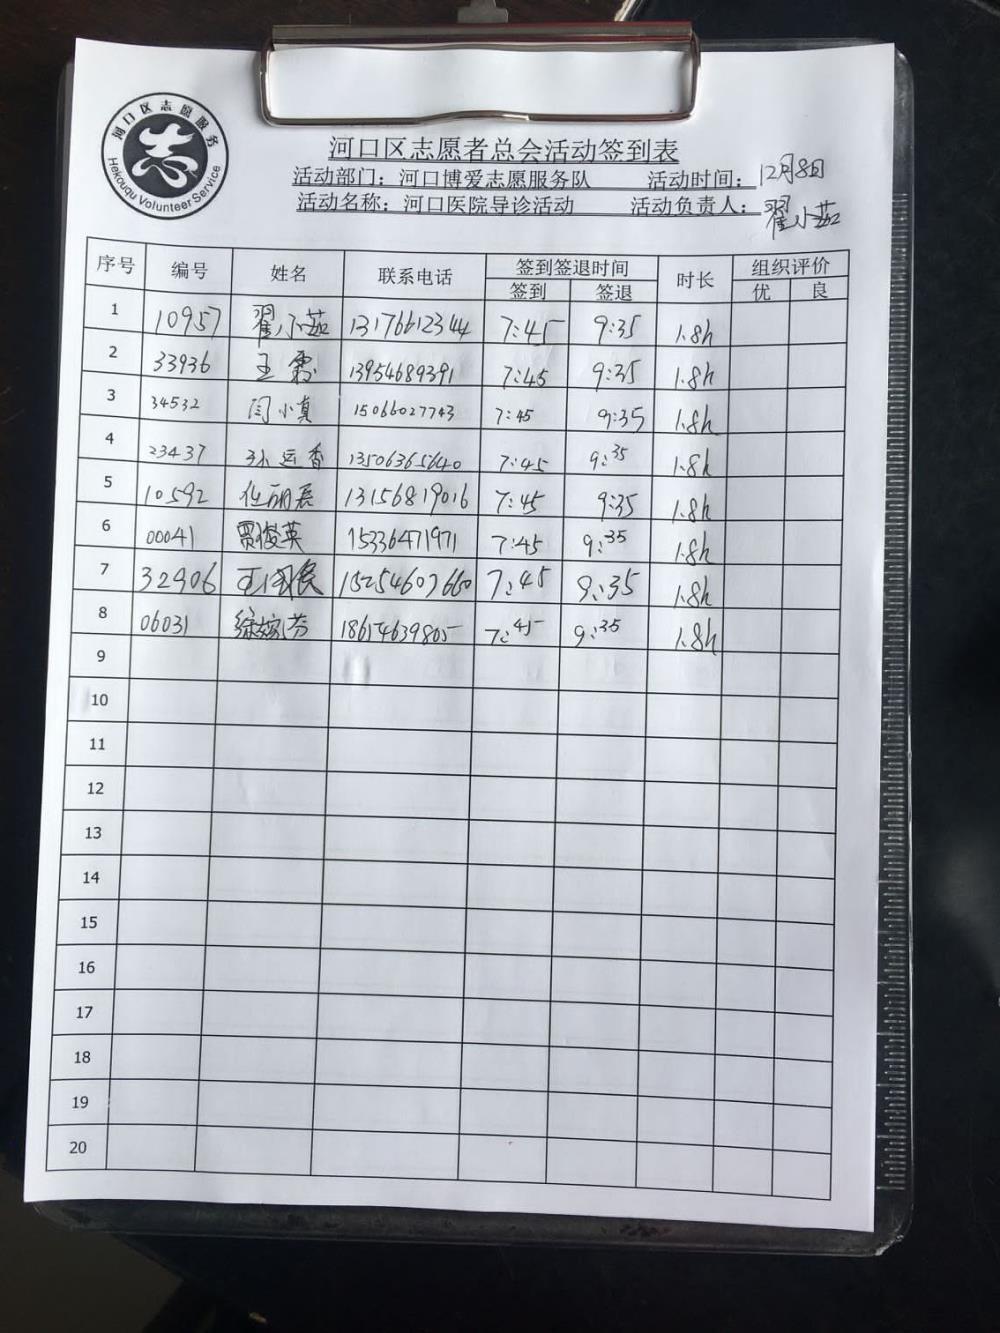 河口区志愿服务
Hekouqu Volunteer Service
河口区志愿者总会活动签到表
活动部门：河口博爱志愿服务队 活动时间：12月8日
活动名称：河口医院导诊活动 活动负责人：翟小茹
序号 编号 姓名 联系电话 签到签退时间 时长 组织评价
签到 签退 优 良
1 10957 翟小茹 13176612344 7:45 9:35 1.8h
2 33936 王霞 13954689391 7:45 9:35 1.8h
3 34532 闫小真 15066027743 7:45 9:35 1.8h
4 23437 孙运香 13506365640 7:45 9:35 1.8h
5 10592 任丽君 13156819016 7:45 9:35 1.8h
6 00041 贾俊英 15336471971 7:45 9:35 1.8h
7 32906 15254607660 7:45 9:35 1.8h
8 06031 18654639805 7:45 9:35 1.8h
9
10
11
12
13
14
15
16
17
18
19
20